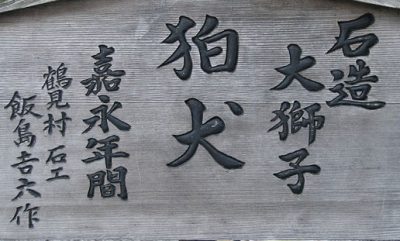 石造
大獅子
狛犬
嘉永年間
鶴見村 石工
飯島吉六作